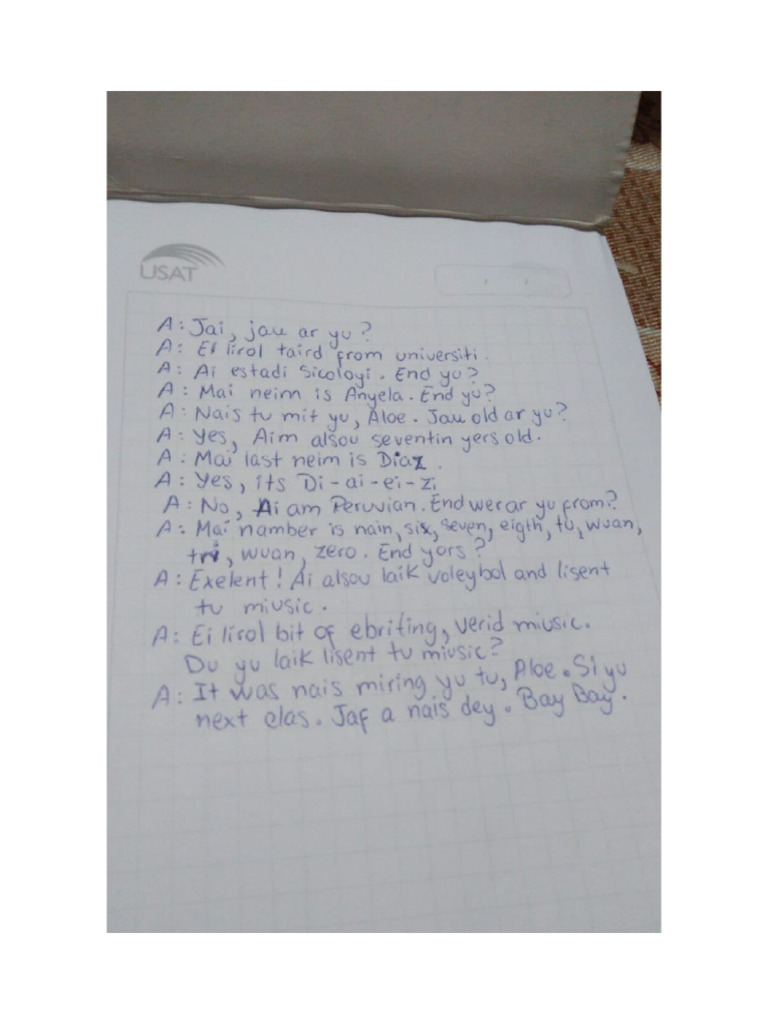 USAT
A: Jai, jau ar yu?
A: Ei lirol taird from universiti.
A: Ai estadi Sicologi. End yu?
A: Mai neim is Anyela. End yu?
A: Nais tu mit yu, Aloe. Jau old ar yu?
A: Yes, Aim alsou seventin yers old.
A: Mai last neim is Diaz.
A: Yes, its Di-ai-ei-zi
A: No, Ai am Peruvian. End wer ar yu from?
A: Mai namber is nain, six, seven, eigth, tu, wuan,
tri, wuan, zero. End yors?
A: Exelent! Ai alsou laik voleybol and lisent
tu miusic.
A: Ei lirol bit of ebrifing, verid miusic.
Du yu laik lisent tu miusic?
A: It was nais miring yu tu, Aloe. Si yu
next clas. Jaf a nais dey. Bay Bay.